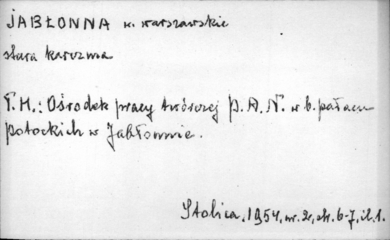 JABŁONNA w. warszawskie
stara karczma
T. H.: Ośrodek pracy twórczej P.A.N. w b. pałacu
Potockich w Jabłonnie.
Stolica, 1954, nr. 2, str. 6-7, il. 1.